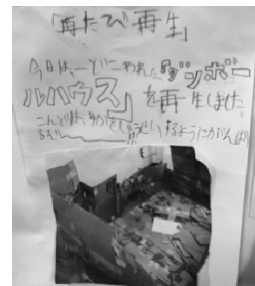 「再たび再生」
今日は、一どこわれた「ダンボー
ルハウス」を再生しました。
こんどは、
るぞ